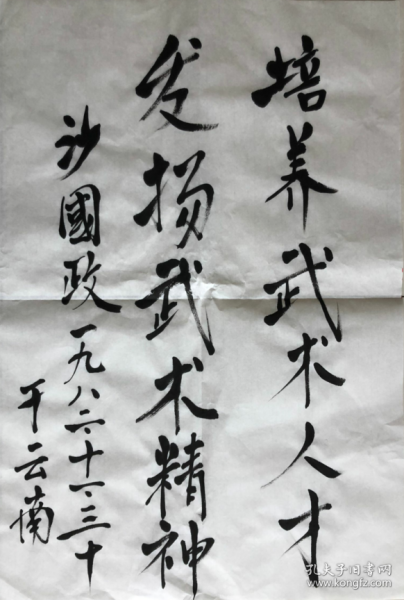 培养武术人才
发扬武术精神
沙國政一九八二·十一·三十
于云南
孔夫子旧书网
www.kongfz.com